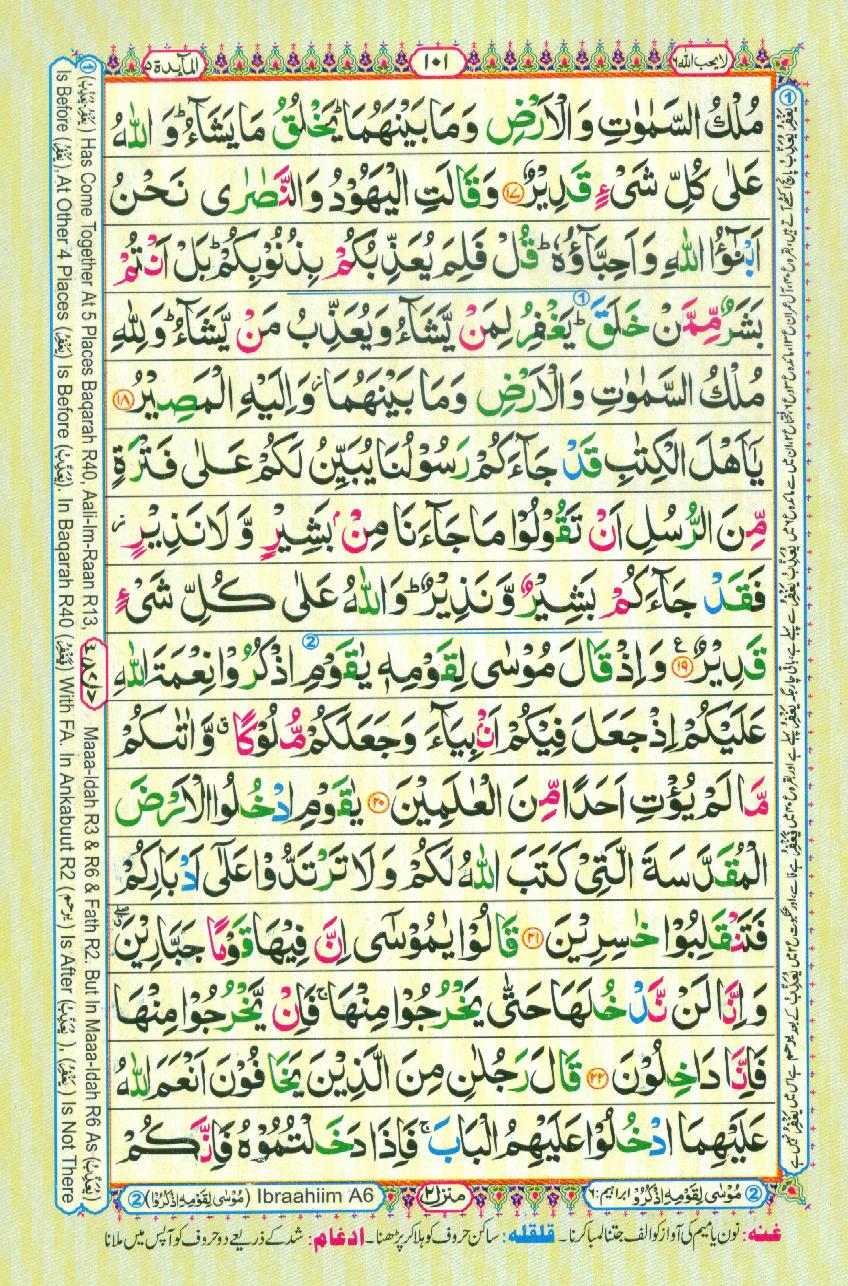 لا يحب الله ٦
١٠١
المآئدة ٥
مُلْكُ السَّمٰوٰتِ وَالْاَرْضِ وَمَا بَيْنَهُمَا ؕ يَخْلُقُ مَا يَشَآءُ ؕ وَاللّٰهُ
عَلٰى كُلِّ شَىْءٍ قَدِيْرٌ ۝۱۷ وَقَالَتِ الْيَهُوْدُ وَالنَّصٰرٰى نَحْنُ
اَبْنٰٓؤُا اللّٰهِ وَاَحِبَّآؤُهٗ ؕ قُلْ فَلِمَ يُعَذِّبُكُمْ بِذُنُوْبِكُمْ ؕ بَلْ اَنْتُمْ
بَشَرٌ مِّمَّنْ خَلَقَ ؕ ① يَغْفِرُ لِمَنْ يَّشَآءُ وَيُعَذِّبُ مَنْ يَّشَآءُ ؕ وَلِلّٰهِ
مُلْكُ السَّمٰوٰتِ وَالْاَرْضِ وَمَا بَيْنَهُمَا ؗ وَاِلَيْهِ الْمَصِيْرُ ۝۱۸
يٰۤاَهْلَ الْكِتٰبِ قَدْ جَآءَكُمْ رَسُوْلُنَا يُبَيِّنُ لَكُمْ عَلٰى فَتْرَةٍ
مِّنَ الرُّسُلِ اَنْ تَقُوْلُوْا مَا جَآءَنَا مِنْۢ بَشِيْرٍ وَّلَا نَذِيْرٍ ؗ
فَقَدْ جَآءَكُمْ بَشِيْرٌ وَّنَذِيْرٌ ؕ وَاللّٰهُ عَلٰى كُلِّ شَىْءٍ
قَدِيْرٌ ۝۱۹ ع وَاِذْ قَالَ مُوْسٰى لِقَوْمِهٖ ② يٰقَوْمِ اذْكُرُوْا نِعْمَةَ اللّٰهِ
عَلَيْكُمْ اِذْ جَعَلَ فِيْكُمْ اَنْۢبِيَآءَ وَجَعَلَكُمْ مُّلُوْكًا ۖق وَّاٰتٰىكُمْ
مَّا لَمْ يُؤْتِ اَحَدًا مِّنَ الْعٰلَمِيْنَ ۝۲۰ يٰقَوْمِ ادْخُلُوا الْاَرْضَ
الْمُقَدَّسَةَ الَّتِىْ كَتَبَ اللّٰهُ لَكُمْ وَلَا تَرْتَدُّوْا عَلٰٓى اَدْبَارِكُمْ
فَتَنْقَلِبُوْا خٰسِرِيْنَ ۝۲۱ قَالُوْا يٰمُوْسٰٓى اِنَّ فِيْهَا قَوْمًا جَبَّارِيْنَ
وَاِنَّا لَنْ نَّدْخُلَهَا حَتّٰى يَخْرُجُوْا مِنْهَا ۚ فَاِنْ يَّخْرُجُوْا مِنْهَا
فَاِنَّا دٰخِلُوْنَ ۝۲۲ قَالَ رَجُلٰنِ مِنَ الَّذِيْنَ يَخَافُوْنَ اَنْعَمَ اللّٰهُ
عَلَيْهِمَا ادْخُلُوْا عَلَيْهِمُ الْبَابَ ۚ فَاِذَا دَخَلْتُمُوْهُ فَاِنَّكُمْ
② مُوْسٰى لِقَوْمِهٖ اذْكُرُوْا ابراہیم: ٦
منزل ٢
② (مُوْسٰى لِقَوْمِهٖ اذْكُرُوْا) Ibraahiim A6
غنه: نون یا میم کی آواز کو الف جتنا لمبا کرنا۔ قلقله: ساکن حروف کو ہلا کر پڑھنا۔ ادغام: شد کے ذریعے دو حروف کو آپس میں ملانا
① (يَغْفِرُ يُعَذِّبُ) Has Come Together At 5 Places Baqarah R40, Aali-Im-Raan R13, Maaa-Idah R3 & R6 & Fath R2. But In Maaa-Idah R6 As (يُعَذِّبُ)
Is Before (يَغْفِرُ). At Other 4 Places (يَغْفِرُ) Is Before (يُعَذِّبُ). In Baqarah R40 (فَيَغْفِرُ) With FA. In Ankabuut R2 (يرحم) Is After (يُعَذِّبُ), (يَغْفِرُ) Is Not There